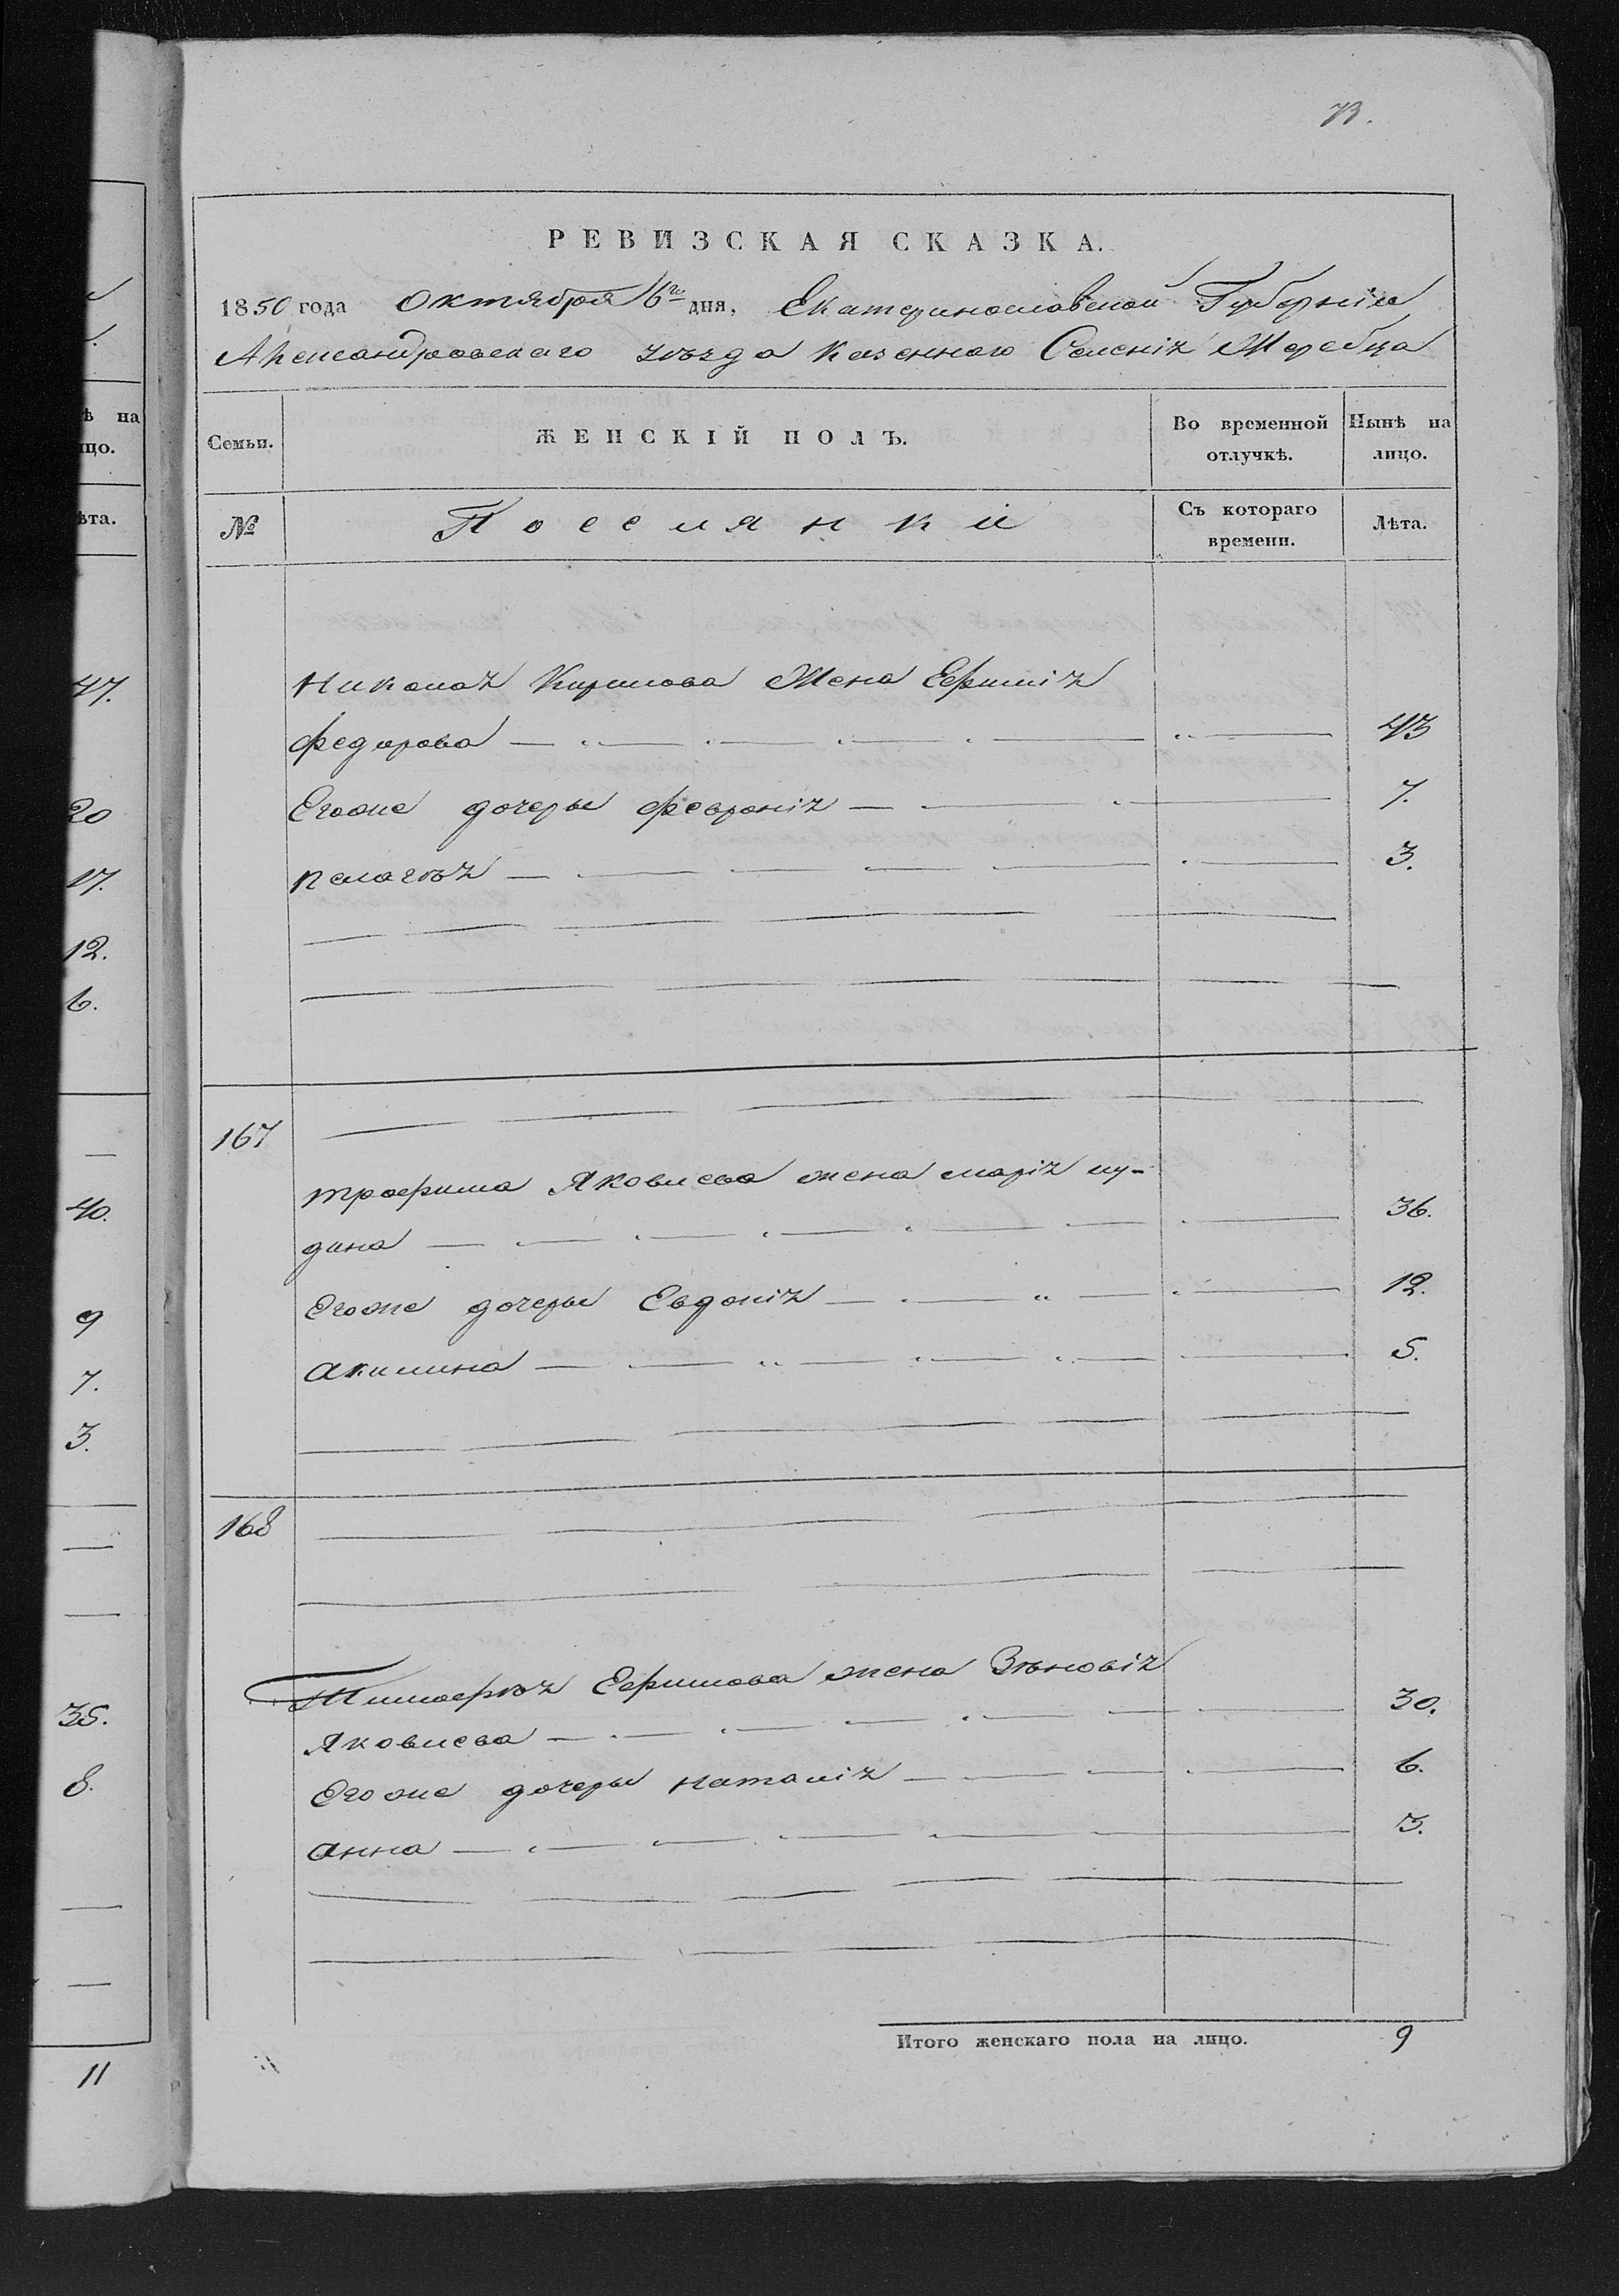 73.
РЕВИЗСКАЯ СКАЗКА.
1850 года Октября 16го дня, Екатеринославской Губерніи
Александровскаго уѣзда казенного Селенія Жеребца
Семьи. ЖЕНСКІЙ ПОЛЪ. Во временной отлучкѣ. Нынѣ на лицо.
№ Поселянки Съ котораго времени. Лѣта.
Николая Кирилова Жена Ефимія
федорова 43
Егоже дочеры февронія 7.
пелагѣя 3.
167
трофима Яковлева жена марія
36.
Егоже дочеры Евдокія 12.
акилина 5.
168
Тимофѣя Ефимова жена Зѣновія
Яковлева 30.
Егоже дочеры наталія 6.
анна 3.
Итого женскаго пола на лицо. 9
ѣ на
цо.
ѣта.
47.
20
17.
12.
6.
40.
9
7.
3.
35.
8.
11